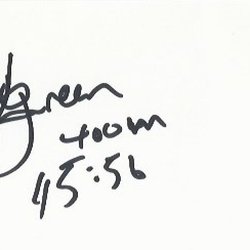 Green
400m
45:56